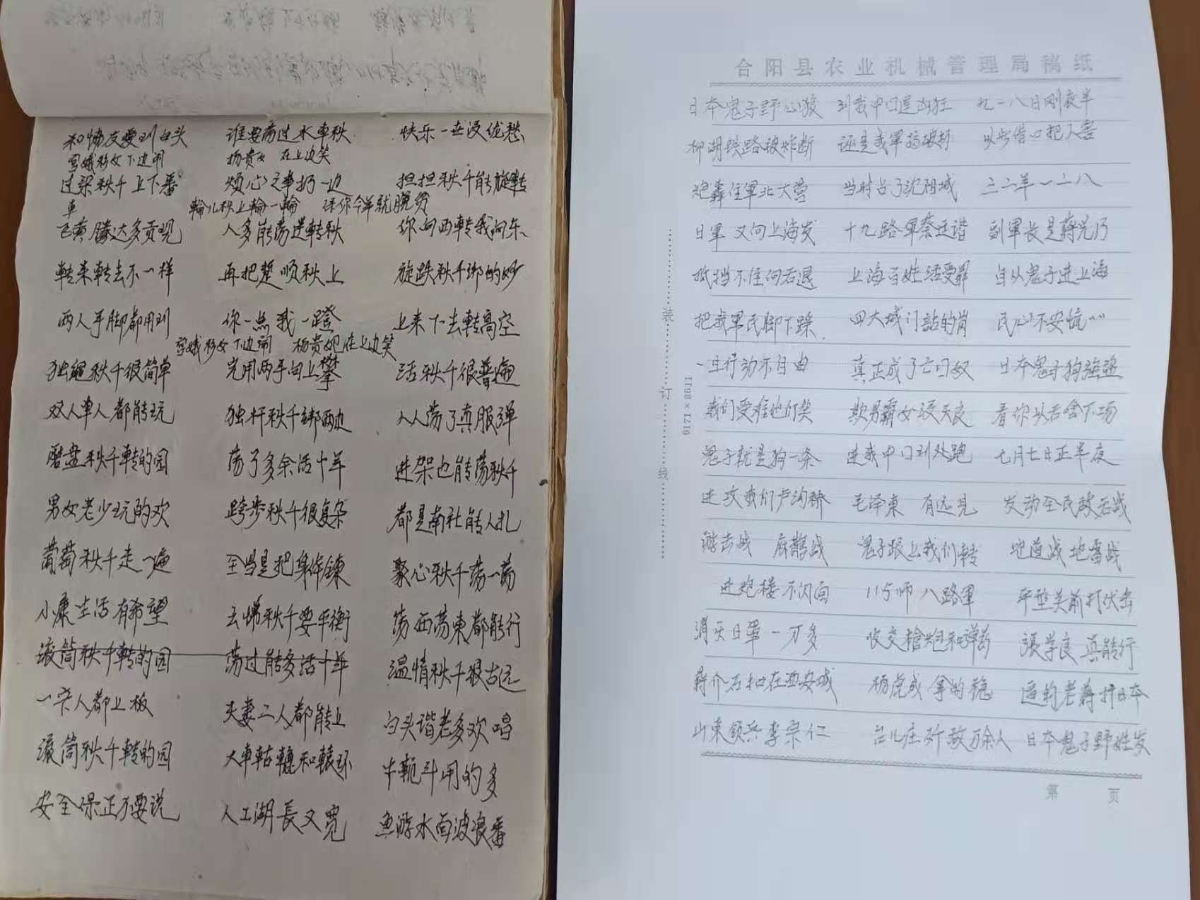 和情友爱到白头 谁要荡过水车秋 快乐一世没忧愁
宫娥彩女下边闹 杨贵妃在上边笑
过梁秋千上下番 烦心之事扔一边 担担秋千能旋转
车 轮儿秋上轮一轮 你今年就脱贫
飞黄腾达多贡现 人多能荡是转秋 你向西转我向东
转来转去不一样 再把楚顺秋上 旋跌秋千绑的妙
两人手脚都用到 你一点我一蹬 上来下去转高空
宫娥彩女下边闹 杨贵妃在上边笑
独 秋千很简单 完用两手向上攀 活秋千很普遍
双人单人都能玩 独杆秋千绑两边 人人荡了真服弹
磨盘秋千转的园 荡了多余活十年 进架也能荡秋千
男女老少玩的欢 跨步秋千很复杂 都是南社能人扎
葡萄秋千走一遍 全当是把身体鍊 聚心秋千荡一荡
小康生活有希望 云梯秋千要平衡 荡西荡东都能行
滚筒秋千转的园 荡过能多活十年 温情秋千很古远
一家人都上板 夫妻二人都能上 白头谐老多欢唱
滚筒秋千转的园 大车轱轆和轅环 牛轭斗用的多
安全保正不要说 人工湖長又宽 鱼游水面波浪番
合阳县农业机械管理局稿纸
日本鬼子野心狼 到我中国逞凶狂 九一八日刚夜半
柳湖铁路被炸断 诬是我軍搞破坏 以此借口把人害
炮轰住軍北大营 当时占了沈阳城 三二年一二八
日軍又向上海发 十九路軍蔡廷谐 副軍长是蒋光乃
抵挡不住向右退 上海百姓活受罪 自从鬼子进上海
把我軍民脚下踩 四大城门站的岗 民心不安慌
且行动不自由 真正成了亡国奴 日本鬼子狗强盗
我们受难他们笑 欺男霸女没天良 看你以后啥下场
鬼子就是狗一条 进我中国到处跑 七月七日正半夜
进攻我们卢沟桥 毛泽東 有远见 发动全民敌后战
游击战 麻雀战 鬼子跟上我们转 地道战地雷战
进炮楼不闪面 115师 八路軍 平型关前打伏击
消灭日軍一万多 收交槍炮和弹药 張学良真能行
蒋介石扣在西安城 杨虎成拿的稳 逼的老蒋打日本
山東领兵李宗仁 台儿庄歼敌万余人 日本鬼子野性发
装订线
1198×1216
第 页